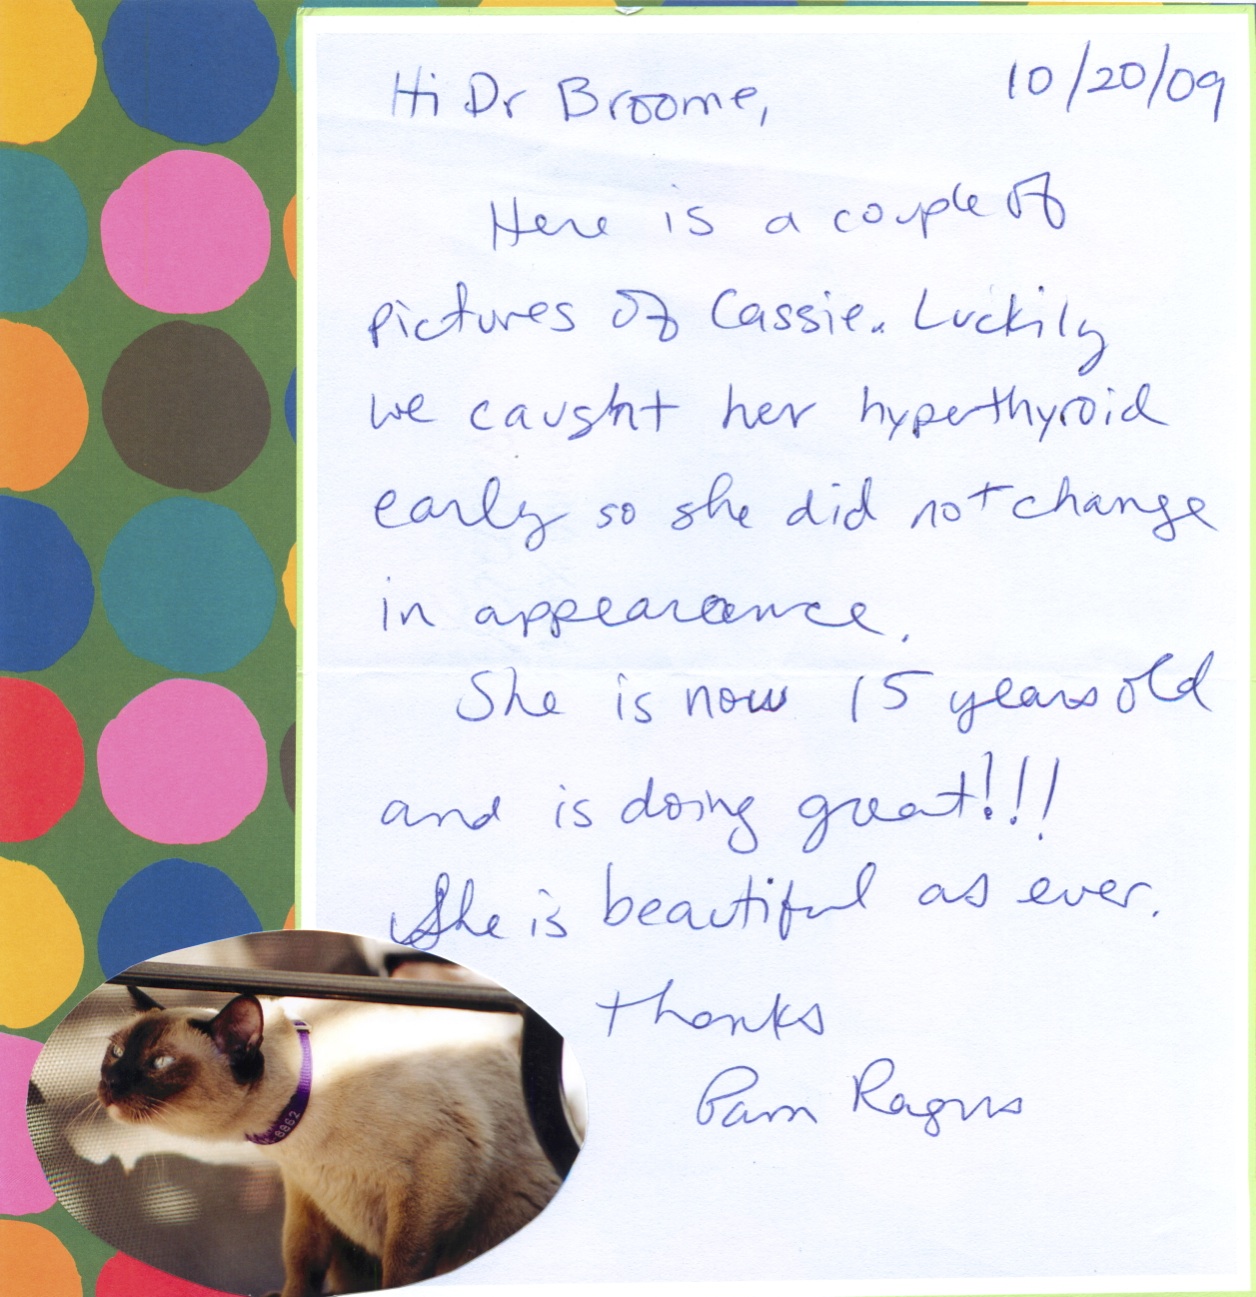 Hi Dr Broome, 10/20/09
Here is a couple of
pictures of Cassie. Luckily
we caught her hyperthyroid
early so she did not change
in appearance.
She is now 15 years old
and is doing great!!!
She is beautiful as ever.
thanks
Pam Ragus
8862